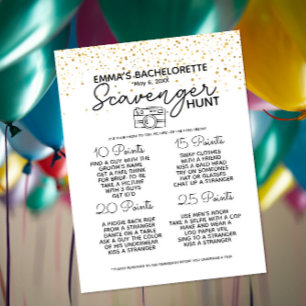 EMMA'S BACHELORETTE
*May 6, 20
Scavenger
HUNT
10 Points
FIND A GUY WITH THE
GROOM'S NAME
GET A FREE DRINK
FOR BRIDE TO BE
TAKE A PICTURE
WITH 3 GUYS
GET ID'D
15 Points
SWAP CLOTHES
WITH A FRIEND
KISS A BALD HEAD
TRY ON SOMEONES
HAT OR GLASSES
CHAT UP A STRANGER
20 Points
A PIGGIE BACK RIDE
FROM A STRANGER
DANCE ON A TABLE
ASK A GUY THE COLOR
OF HIS UNDERWEAR
KISS A STRANGER
25 Points
USE MEN'S ROOM
TAKE A SELFIE WITH A COP
MAKE AND WEAR A
LOO PAPER VEIL
SING TO A STRANGER
KISS A STRANGER